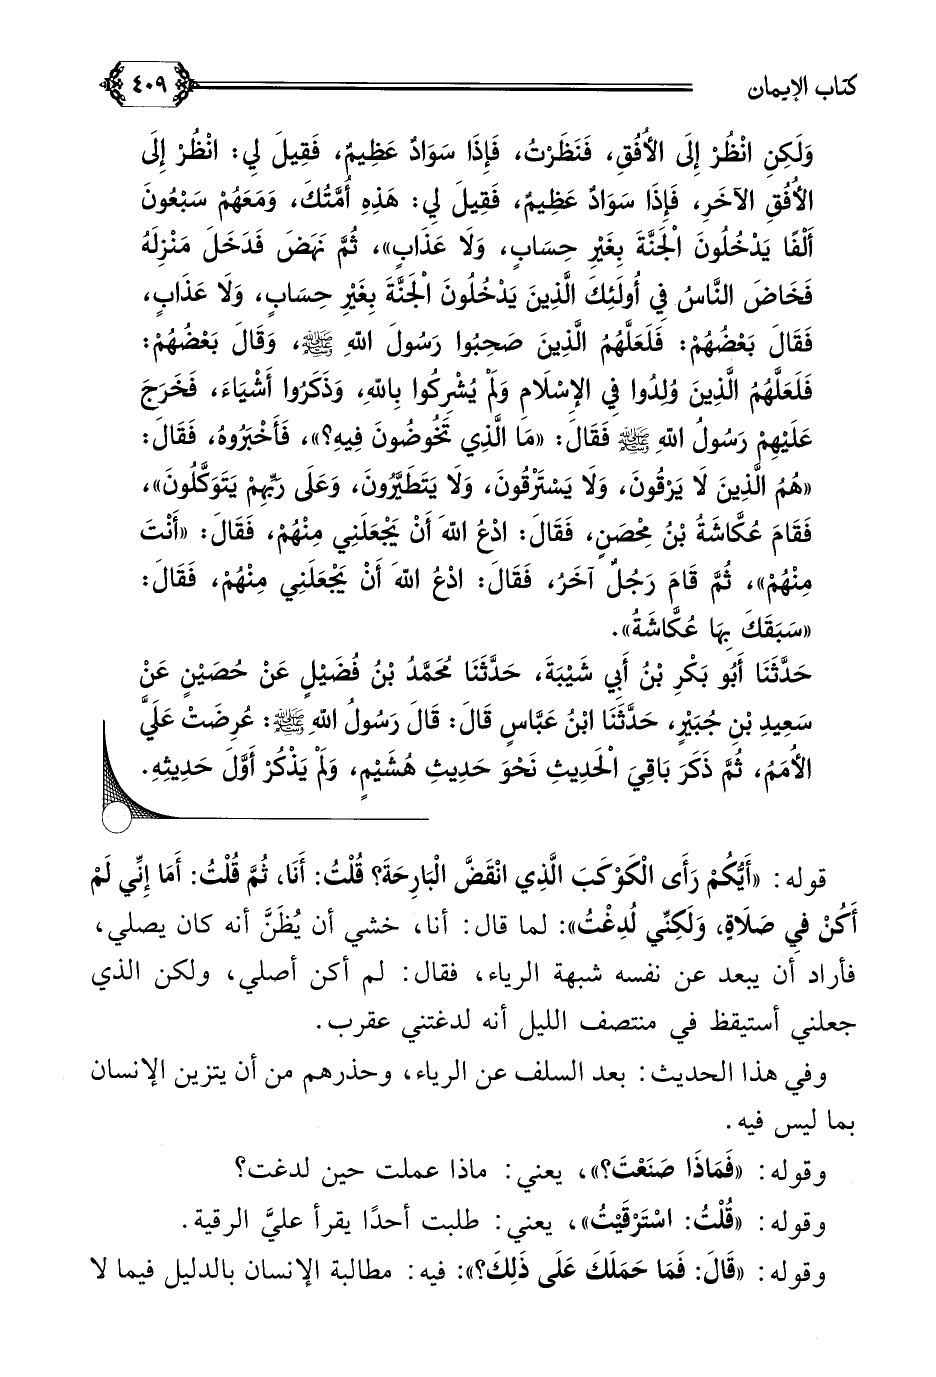 كتاب الإيمان
٤٠٩
وَلَكِنِ انْظُرْ إِلَى الأُفُقِ، فَنَظَرْتُ، فَإِذَا سَوَادٌ عَظِيمٌ، فَقِيلَ لِي: انْظُرْ إِلَى
الأُفُقِ الآخَرِ، فَإِذَا سَوَادٌ عَظِيمٌ، فَقِيلَ لِي: هَذِهِ أُمَّتُكَ، وَمَعَهُمْ سَبْعُونَ
أَلْفًا يَدْخُلُونَ الْجَنَّةَ بِغَيْرِ حِسَابٍ، وَلَا عَذَابٍ»، ثُمَّ نَهَضَ فَدَخَلَ مَنْزِلَهُ
فَخَاضَ النَّاسُ فِي أُولَئِكَ الَّذِينَ يَدْخُلُونَ الْجَنَّةَ بِغَيْرِ حِسَابٍ، وَلَا عَذَابٍ،
فَقَالَ بَعْضُهُمْ: فَلَعَلَّهُمُ الَّذِينَ صَحِبُوا رَسُولَ اللهِ ﷺ، وَقَالَ بَعْضُهُمْ:
فَلَعَلَّهُمُ الَّذِينَ وُلِدُوا فِي الإِسْلَامِ وَلَمْ يُشْرِكُوا بِاللهِ، وَذَكَرُوا أَشْيَاءَ، فَخَرَجَ
عَلَيْهِمْ رَسُولُ اللهِ ﷺ فَقَالَ: «مَا الَّذِي تَخُوضُونَ فِيهِ؟»، فَأَخْبَرُوهُ، فَقَالَ:
«هُمُ الَّذِينَ لَا يَرْقُونَ، وَلَا يَسْتَرْقُونَ، وَلَا يَتَطَيَّرُونَ، وَعَلَى رَبِّهِمْ يَتَوَكَّلُونَ»،
فَقَامَ عُكَّاشَةُ بْنُ مِحْصَنٍ، فَقَالَ: ادْعُ اللهَ أَنْ يَجْعَلَنِي مِنْهُمْ، فَقَالَ: «أَنْتَ
مِنْهُمْ»، ثُمَّ قَامَ رَجُلٌ آخَرُ، فَقَالَ: ادْعُ اللهَ أَنْ يَجْعَلَنِي مِنْهُمْ، فَقَالَ:
«سَبَقَكَ بِهَا عُكَّاشَةُ».
حَدَّثَنَا أَبُو بَكْرِ بْنُ أَبِي شَيْبَةَ، حَدَّثَنَا مُحَمَّدُ بْنُ فُضَيْلٍ عَنْ حُصَيْنٍ عَنْ
سَعِيدِ بْنِ جُبَيْرٍ، حَدَّثَنَا ابْنُ عَبَّاسٍ قَالَ: قَالَ رَسُولُ اللهِ ﷺ: عُرِضَتْ عَلَيَّ
الأُمَمُ، ثُمَّ ذَكَرَ بَاقِيَ الْحَدِيثِ نَحْوَ حَدِيثِ هُشَيْمٍ، وَلَمْ يَذْكُرْ أَوَّلَ حَدِيثِهِ.
قوله: «أَيُّكُمْ رَأَى الْكَوْكَبَ الَّذِي انْقَضَّ الْبَارِحَةَ؟ قُلْتُ: أَنَا، ثُمَّ قُلْتُ: أَمَا إِنِّي لَمْ
أَكُنْ فِي صَلَاةٍ، وَلَكِنِّي لُدِغْتُ»: لما قال: أنا، خشي أن يُظَنَّ أنه كان يصلي،
فأراد أن يبعد عن نفسه شبهة الرياء، فقال: لم أكن أصلي، ولكن الذي
جعلني أستيقظ في منتصف الليل أنه لدغتني عقرب.
وفي هذا الحديث: بعد السلف عن الرياء، وحذرهم من أن يتزين الإنسان
بما ليس فيه.
وقوله: «فَمَاذَا صَنَعْتَ؟»، يعني: ماذا عملت حين لدغت؟
وقوله: «قُلْتُ: اسْتَرْقَيْتُ»، يعني: طلبت أحدًا يقرأ عليَّ الرقية.
وقوله: «قَالَ: فَمَا حَمَلَكَ عَلَى ذَلِكَ؟»: فيه: مطالبة الإنسان بالدليل فيما لا